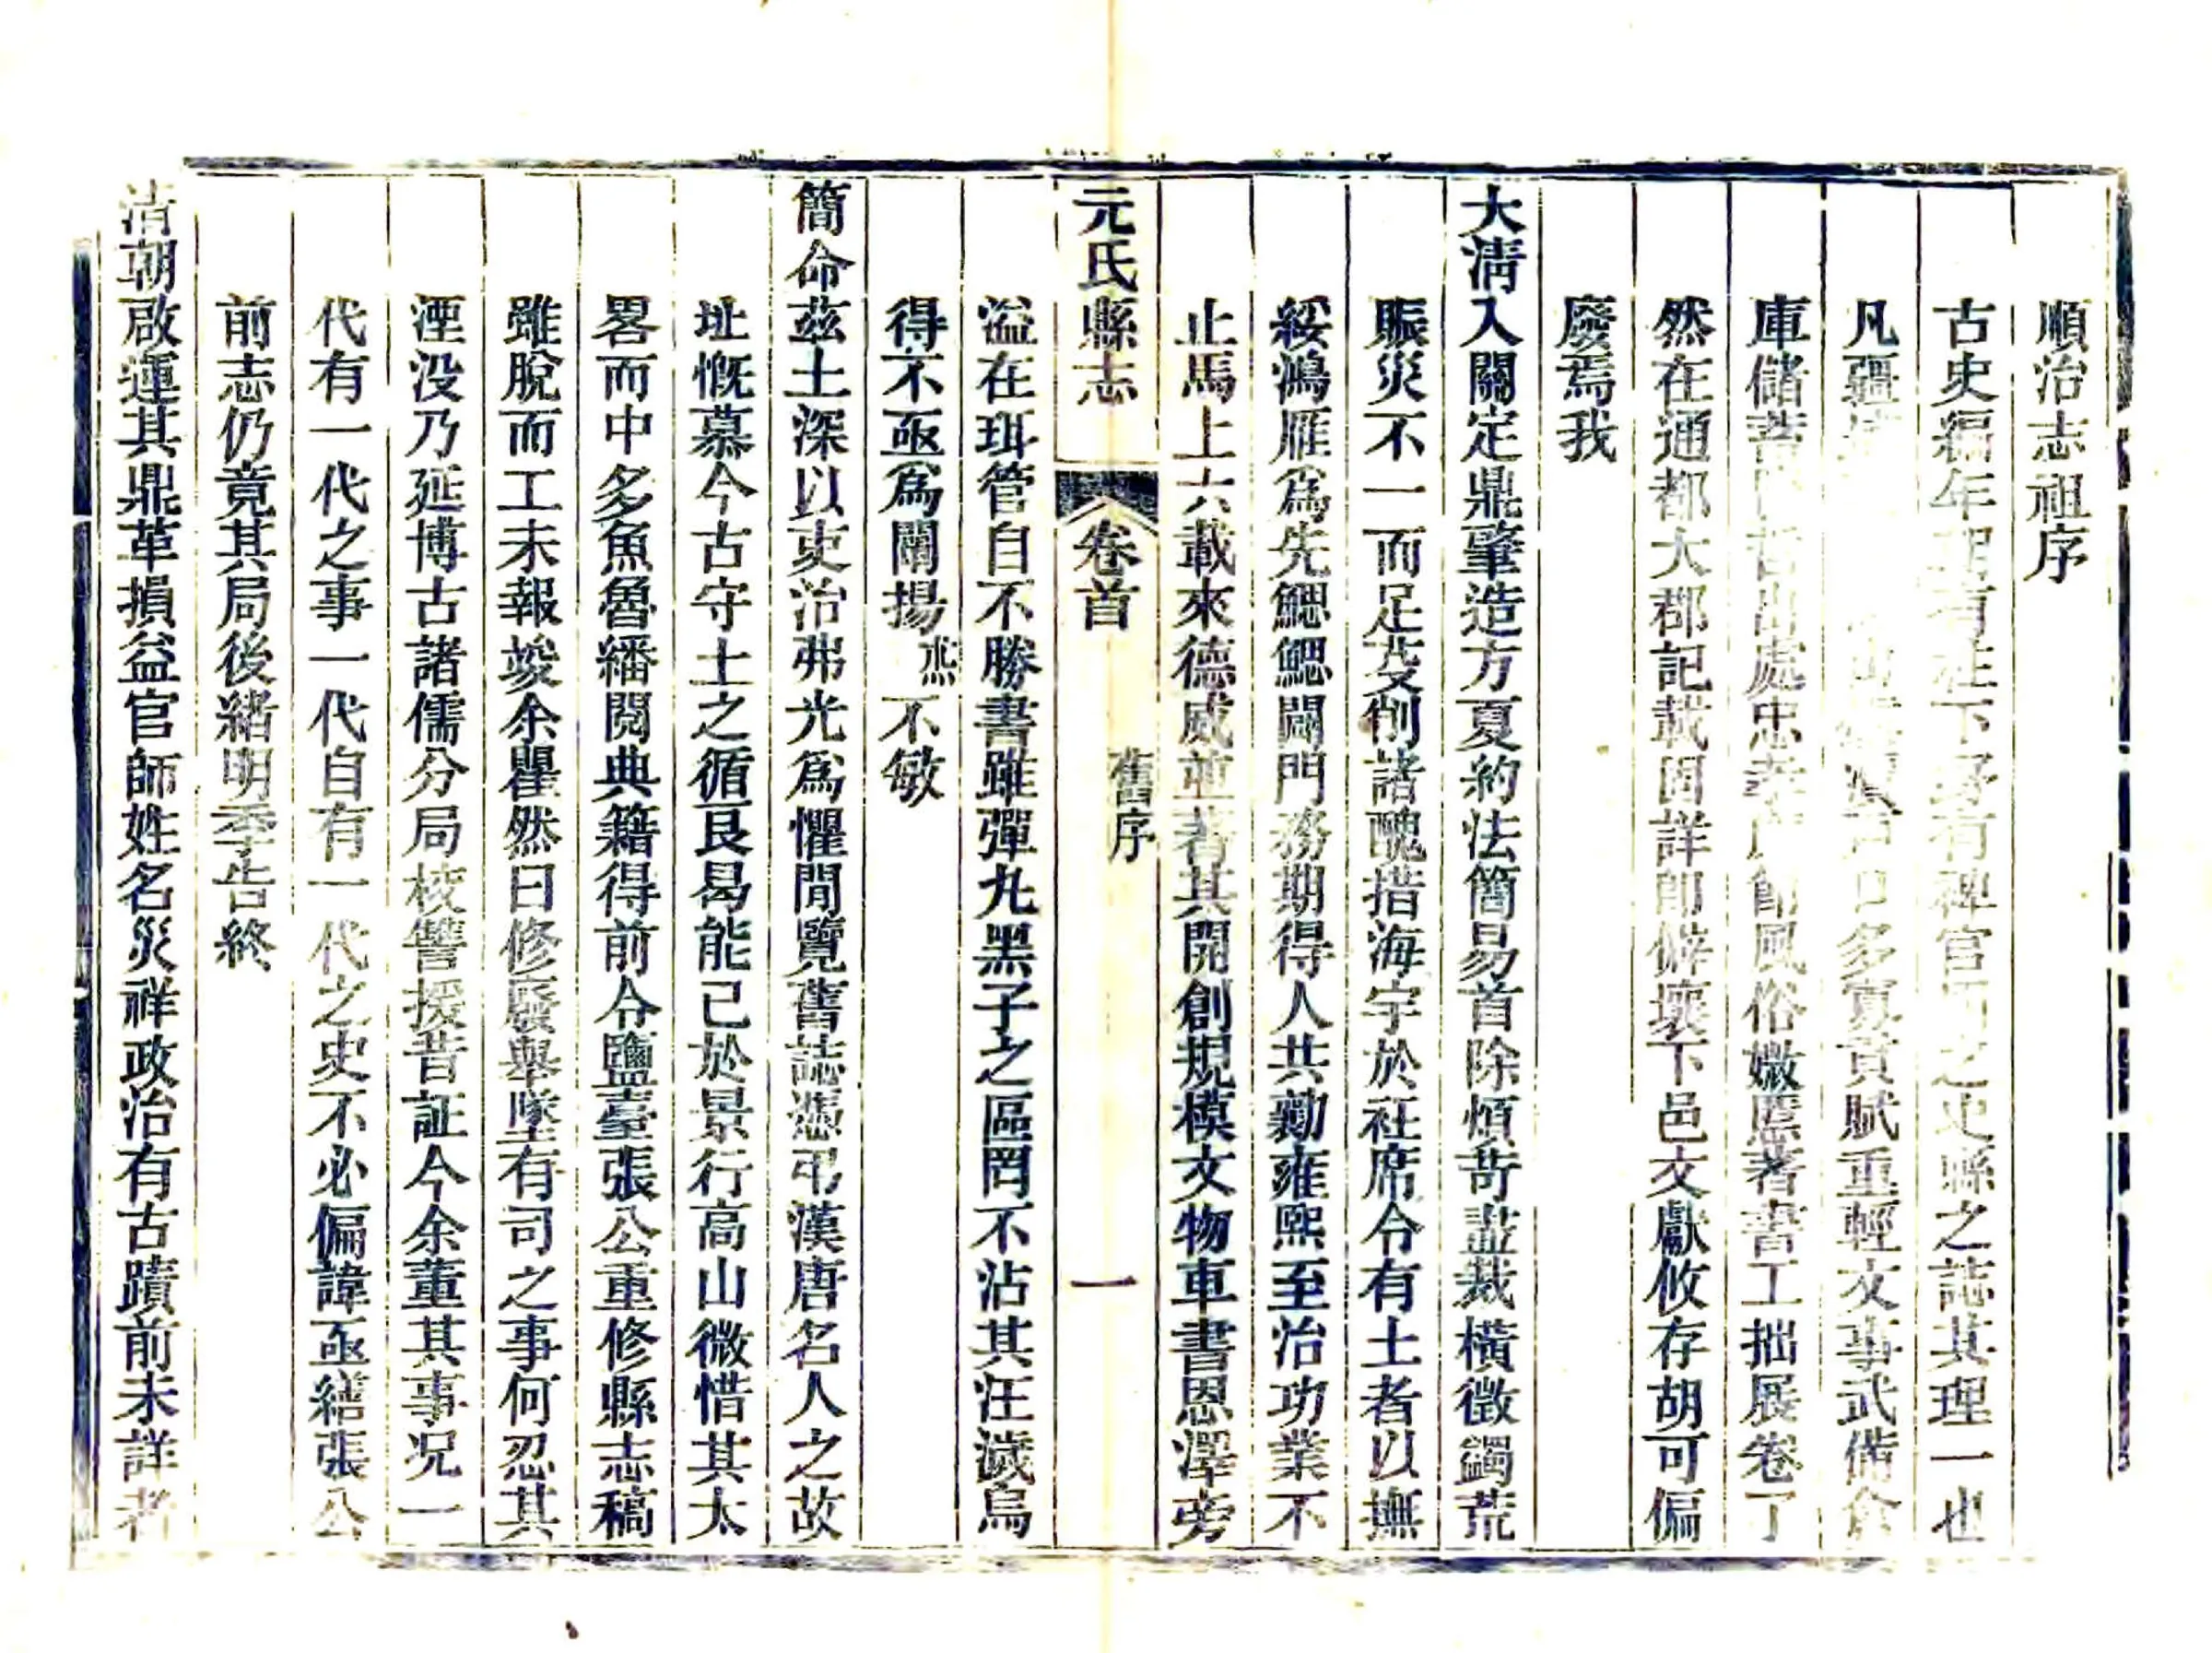 順治志祖序
古史編年理有柱下 有稗官 之史縣之誌其理一也
凡疆 戶口多寡貢賦重輕文事武備倉
庫儲蓄 出處忠孝 節風俗媺慝著書工拙展卷了
然在通都大郡記載固詳即僻壤下邑文獻攸存胡可偏
廢焉我
大清入關定鼎肇造方夏約法簡易首除煩苛盡裁橫徵蠲荒
賑災不一而足芟削諸醜措海宇於衽席令有土者以撫
綏鴻雁爲先鰓鰓闢門務期得人共勷雍熙至治功業不
止馬上六載來德威並著其開創規模文物車書恩澤旁
元氏縣志 卷首 舊序 一
溢在珥管自不勝書雖彈丸黑子之區罔不沾其汪濊烏
得不亟爲闡揚 不敏
簡命茲土深以吏治弗光爲懼間覽舊誌憑弔漢唐名人之故
址慨慕今古守土之循良曷能已於景行高山微惜其太
畧而中多魚魯繙閱典籍得前令鹽臺張公重修縣志稿
雖脫而工未報竣余瞿然曰修廢舉墜有司之事何忍其
湮没乃延博古諸儒分局校讐援昔証今余董其事况一
代有一代之事一代自有一代之史不必偏諱亟繕張公
前志仍竟其局後緒明季告終
清朝啟運其鼎革損益官師姓名災祥政治有古蹟前未詳者